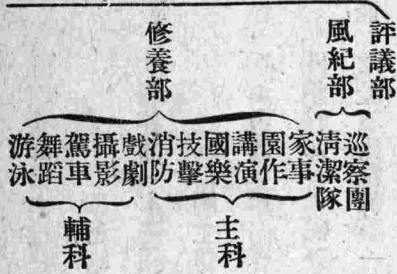 評議部
風紀部
巡察團
清潔隊
修養部
家事
園作
講演
國樂
技擊
消防
戲劇
攝影
駕車
舞蹈
游泳
主科
輔科